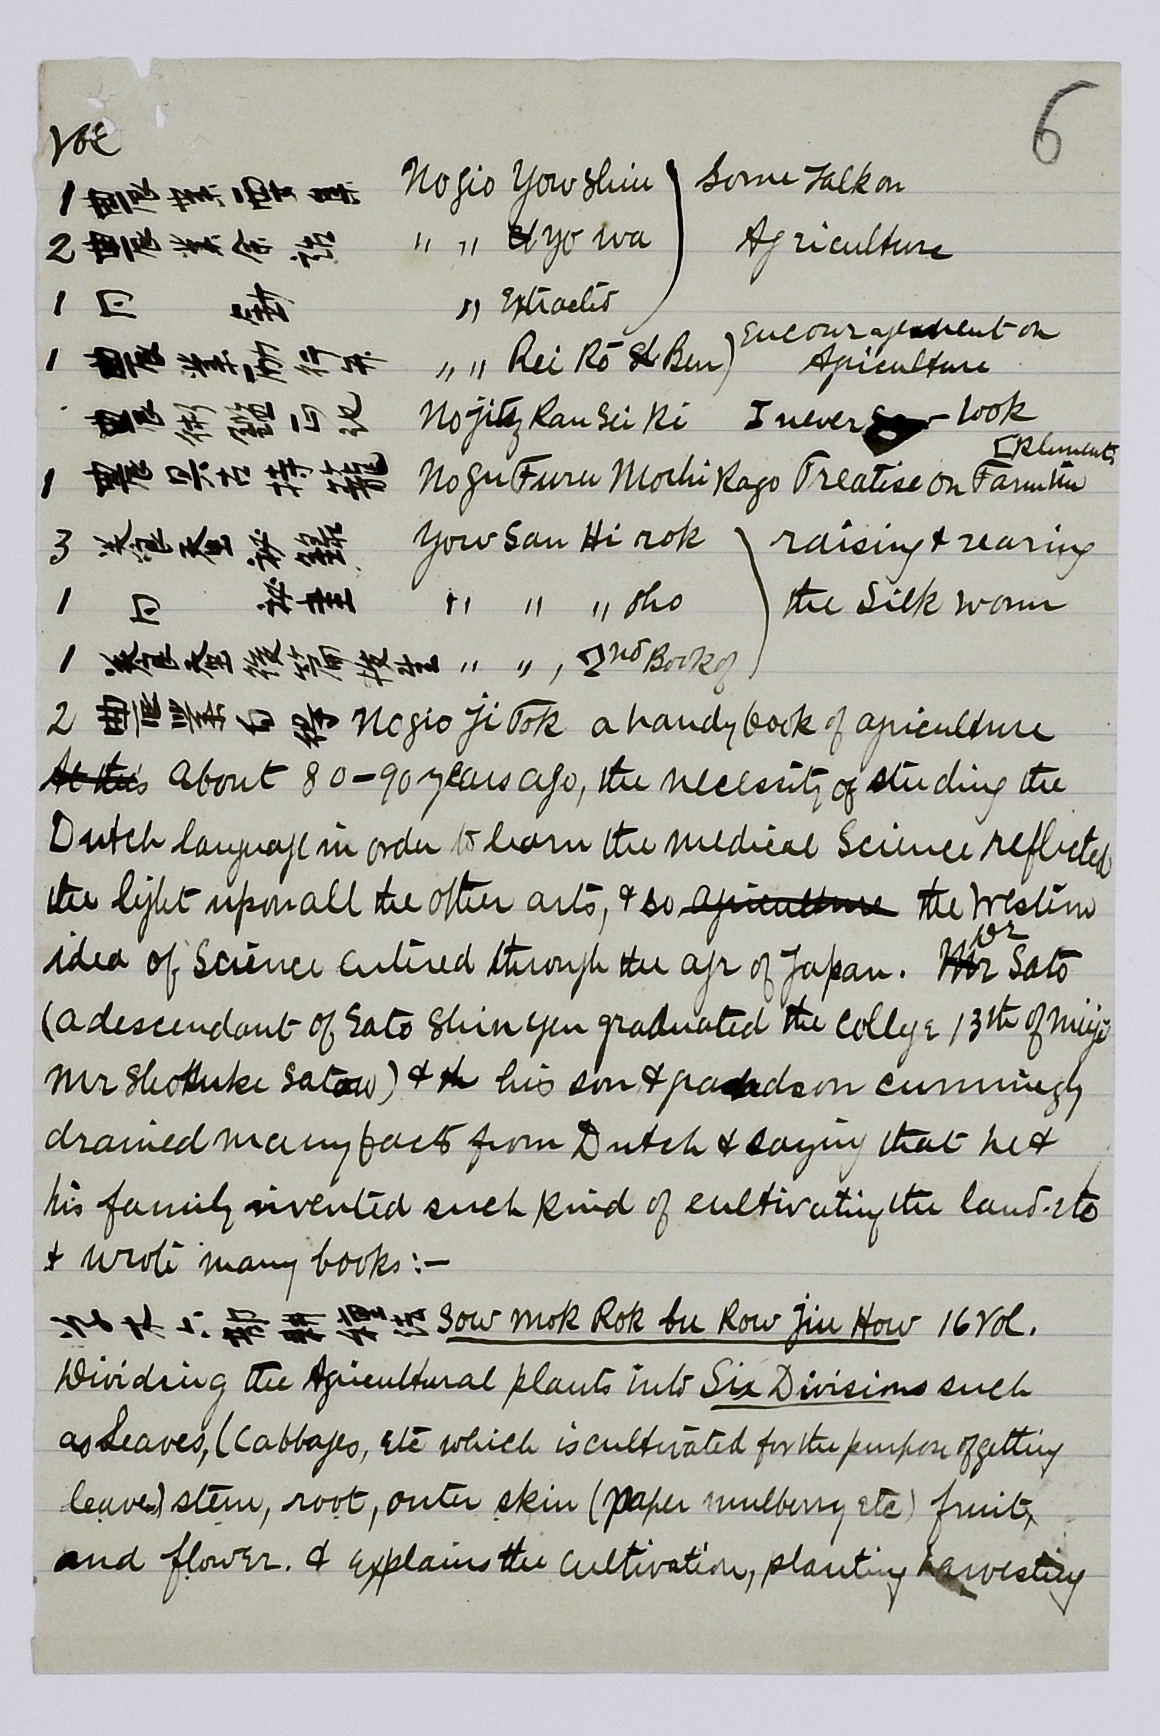 6
Vol
1 農業要心 Nogio Yow Shin ) Some Talk on
2 農業余話 " " Yo wa Agriculture
1 仝 " Extracts
1 農業 " " Rei Ro Ben ) Encouragement on Agriculture
農術鑑正記 Nojitz Kan Sei Ki I never look
1 農具古持籠 Nogu Furu Mochi Kago Treatise on Farming [Elements
3 養蚕秘録 Yow San Hi rok ) raising & rearing
1 仝 " " " sho the Silk worm
1 養蚕 " " , 2nd Book of
2 農業自得 Nogio Ji Tok a handy book of agriculture
At this about 80-90 years ago, the necessity of studing the
Dutch language in order to learn the medical Science reflected
the light upon all the other arts, & so agriculture the Western
idea of Science entered through the age of Japan. Mr Sato
(a descendant of Sato Shin yen graduated the College 13th of Miji
Mr Shosuke Satow) & th his son & grandson cunningly
drained many facts from Dutch & saying that he &
his family invented such kind of cultivating the land. etc
& wrote many books:—
草木六部耕種法 Sow Mok Rok bu Kow Jiu How 16 Vol.
Dividing the Agricultural plants into Six Divisions such
as Leaves, (Cabbages, etc which is cultivated for the purpose of getting
leaves) stem, root, outer skin (paper mulberry etc) fruit,
and flower. & explains the cultivation, planting harvesting